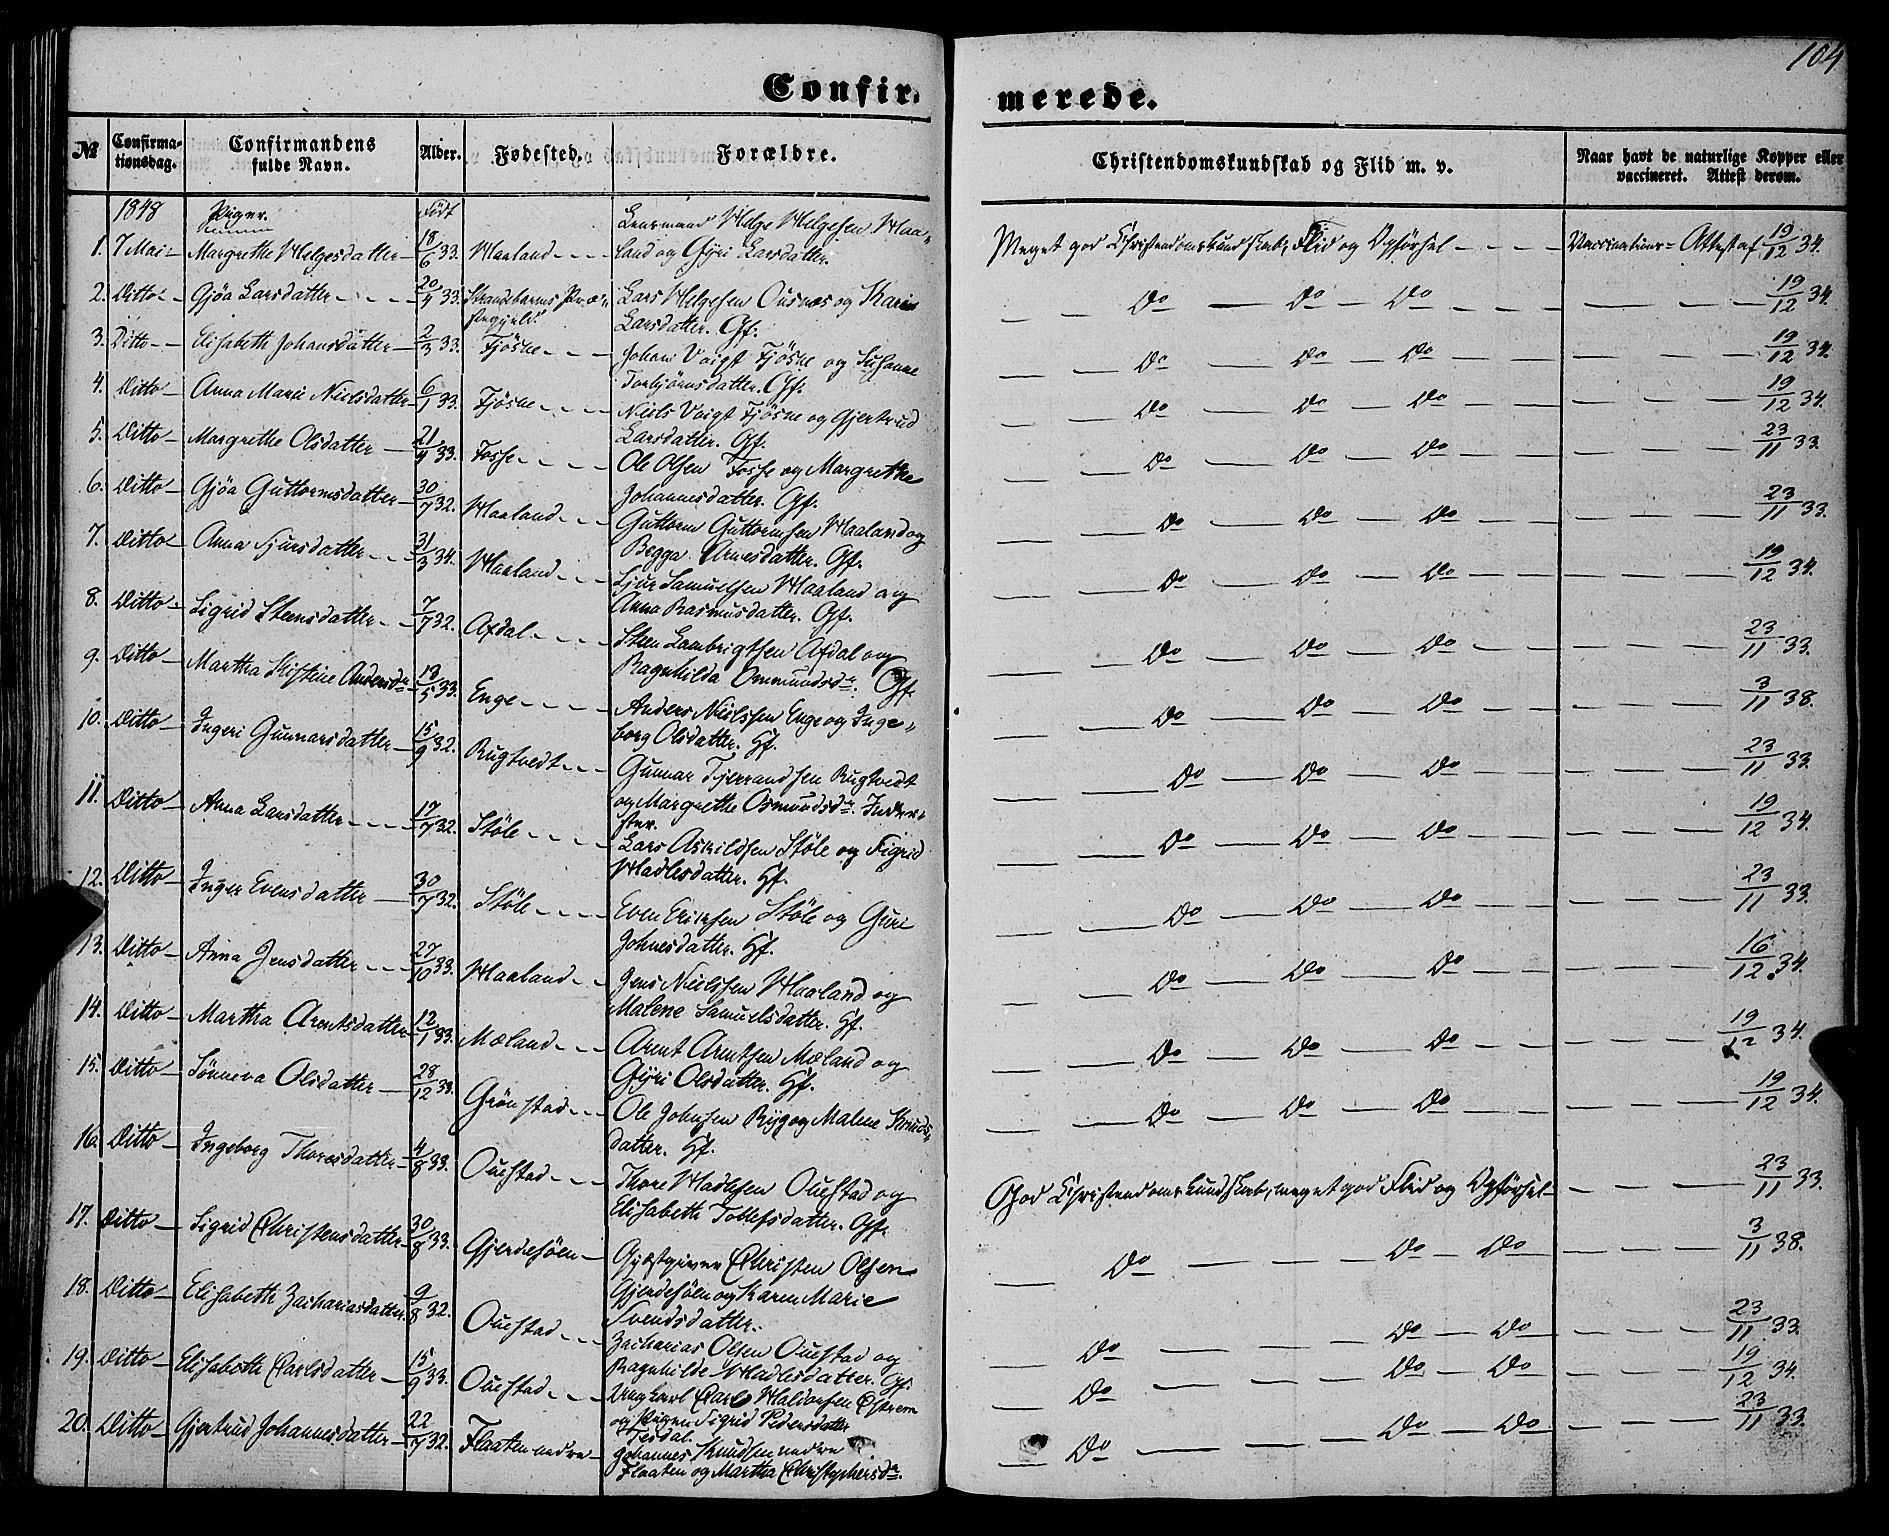 104
Confir-
merede.
№
Confirma-
tionsdag.
Confirmandens
fulde Navn.
Alder.
Fødested.
Forældre.
Christendomskundskab og Flid m. v.
Naar havt de naturlige Kopper eller
vaccineret. Attest derom.
1848 Piger. Født
Lensmand Helge Helgesen Haa-
1. 7 Mai - Margrethe Helgesdatter - 18/6 33. Haaland - - - land og Gyri Larsdatter. Meget god Christendomskundskab, Flid og Opførsel - - - - Vaccinations-Attest af 19/12 34.
2. Ditto - Gjøa Larsdatter - - - 20/4 33. Strandebarms Præ- Lars Helgesen Ousnæs og Kari
stegjeld. Larsdatter. Gf. Do Do Do 19/12 34.
3. Ditto - Elisabeth Johansdatter - 2/3 33. Fjøsne - - - Johan Voigt Fjøsne og Susanne
Torbjørnsdatter. Gf. Do Do Do 19/12 34.
4. Ditto - Anna Marie Nielsdatter - 6/1 33. Fjøsne - - - Niels Voigt Fjøsne og Gjertrud
Larsdatter. Gf. Do Do Do 19/12 34.
5. Ditto - Margrethe Olsdatter - 21/4 33. Fosse - - - Ole Olsen Fosse og Margrethe
Johannesdatter. Gf. Do Do Do 23/11 33.
6. Ditto - Gjøa Guttormsdatter - 30/7 32. Haaland - - - Guttorm Guttormsen Haaland og
Begga Arnesdatter. Gf. Do Do Do 23/11 33.
7. Ditto - Anna Sjursdatter - - 31/3 34. Haaland - - - Sjur Samuelsen Haaland og
Anna Rasmusdatter. Gf. Do Do Do 19/12 34.
8. Ditto - Sigrid Steensdatter - - 7/7 32. Afdal - - - Steen Lambrigtsen Afdal og
Ragnhilda Ommundsdr. Gf. Do Do Do 23/11 33.
9. Ditto - Martha Kistine Andersdr 13/5 33. Enge - - - Anders Nielssen Enge og Inge-
borg Olsdatter. Gf. Do Do Do 3/11 38.
10. Ditto - Ingeri Gunnarsdatter - 15/9 32. Rugtvedt - - - Gunnar Tjerrandsen Rugtvedt
og Margrethe Osmundsdr. Inder-
ster. Do Do Do 23/11 33.
11. Ditto - Anna Larsdatter - - - 17/7 32. Støle - - - Lars Askildsen Støle og Sigrid
Hadlesdatter. Gf. Do Do Do 19/12 34.
12. Ditto - Inger Evensdatter - 30/7 32. Støle - - - Even Ericksen Støle og Guri
Johnesdatter. Gf. Do Do Do 23/11 33.
13. Ditto - Anna Jensdatter - - - 27/10 33. Haaland - - Jens Nielssen Haaland og
Malene Samuelsdatter. Gf. Do Do Do 16/12 34.
14. Ditto - Martha Arentsdatter - 12/1 33. Mæland - - - Arent Arentsen Mæland og
Gyri Olsdatter. Gf. Do Do Do 19/12 34.
15. Ditto - Sønneva Olsdatter - 28/12 33. Grønstad - - - Ole Johnsen Ryg og Malene Knuds-
datter. Gf. Do Do Do 19/12 34.
16. Ditto - Ingeborg Thoresdatter - 4/8 33. Ouestad - - - Thore Hadlesen Ouestad og
Elisabeth Tollefsdatter. Gf. God Christendomskundskab, meget god Flid og Opførsel - 23/11 33.
17. Ditto - Sigrid Christensdatter - 30/8 33. Gjerdesøen - Gjæstgiver Christen Olsen
Gjerdesøen og Karen Marie
Svendsdatter. Do Do Do 3/11 38.
18. Ditto - Elisabeth Zachariasdatter. 9/8 32. Ouestad - - - Zacharias Olsen Ouestad og
Ragnhilde Hadlesdatter. Gf. Do Do Do 23/11 33.
19. Ditto - Elisabeth Carlsdatter - 15/9 33. Ouestad - - - Ungkarl Carl Haldorsen Østrem
og Pigen Sigrid Pedersdatter
Tesdal. Do Do Do 19/12 34.
20. Ditto - Gjertrud Johannesdatter - 22/7 32. Flaaten nedre - Johannes Knudsen nedre
Flaaten og Martha Christophersdr. Do Do Do 23/11 33.